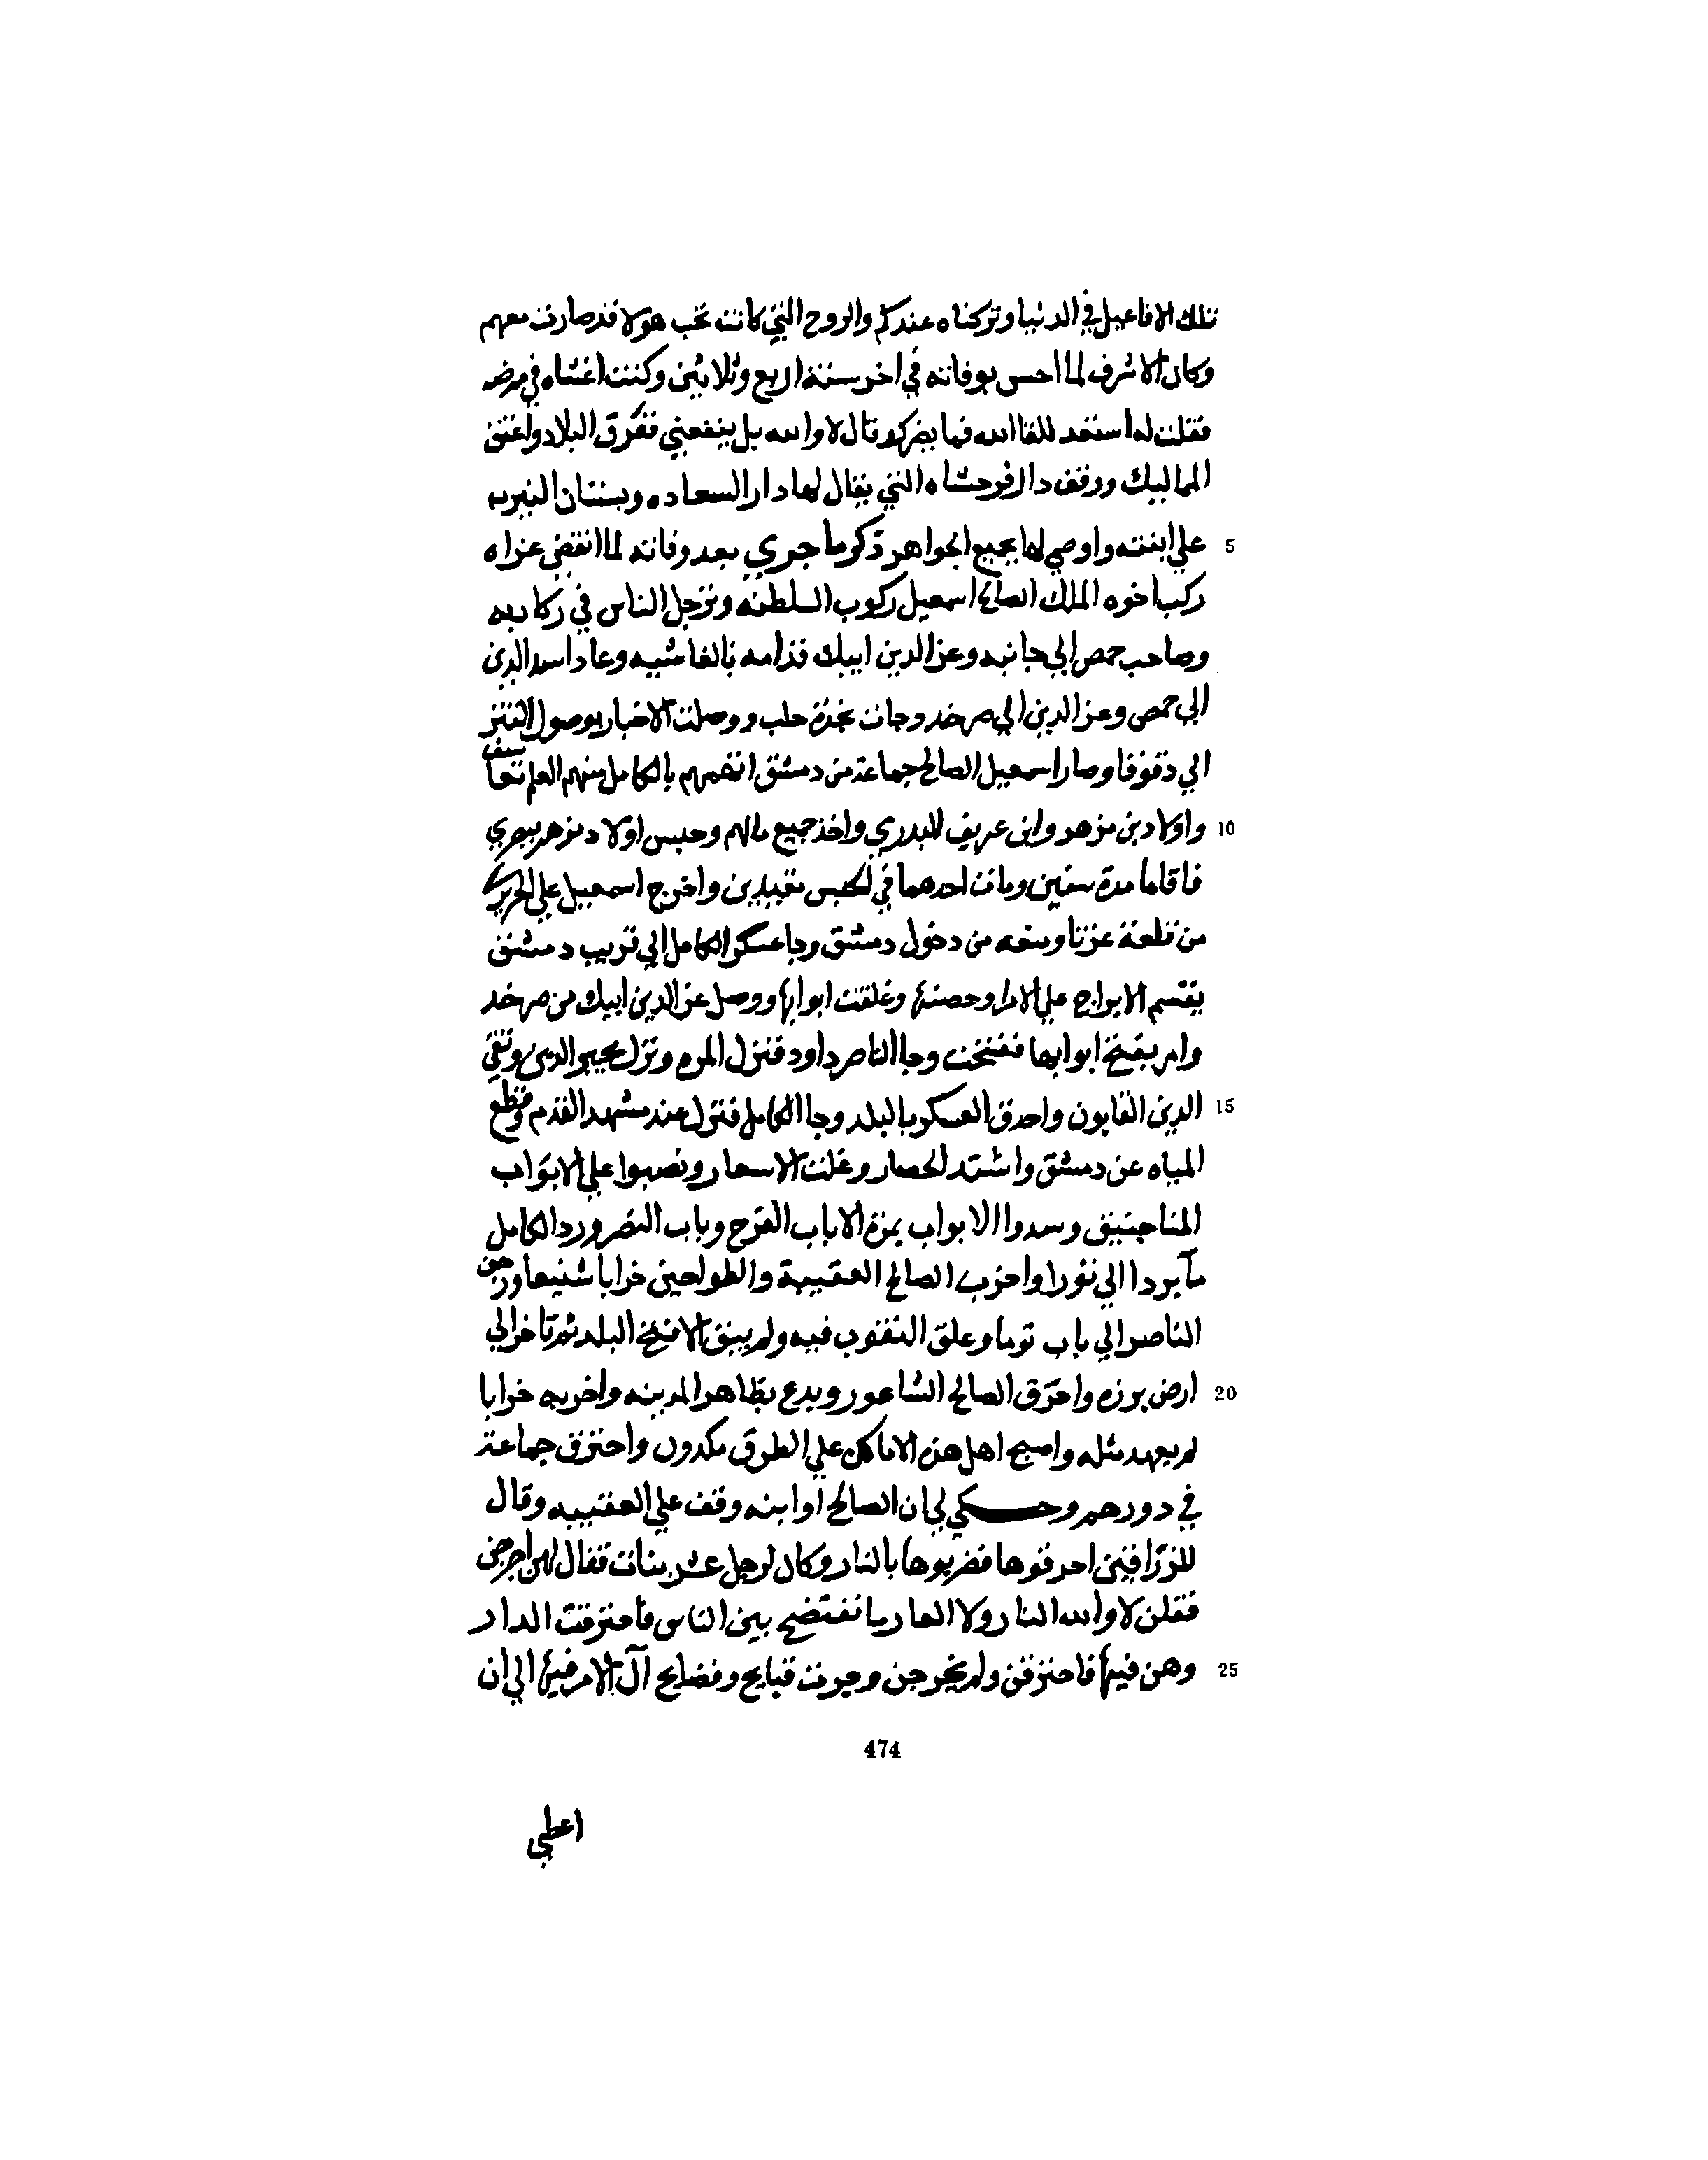 تلك الافاعيل في الدنيا وتركناه عندكم والروح التي كانت تحب هولا قد صارت معهم
وكان الاشرف لما احس بوفاته في اخر سنة اربع وثلاثين وكنت اغشاه في مرضه
فقلت له استعد للقا الله فما يضرك وقال لا والله بل ينفعني ففرق البلاد واعتق
المماليك ووقف دار فرخشاه التي يقال لها دار السعاده وبستان النيرب
5 علي ابنته واوصي لها بجميع الجواهر ذكر ما جري بعد وفاته لما انقضي عزاه
ركب اخوه الملك الصالح اسمعيل ركوب السلطنه وترجل الناس في ركابه
وصاحب حمص الي جانبه وعز الدين ايبك قدامه بالغاشيه وعاد اسد الدين
الي حمص وعز الدين الي صرخد وجات نجدة حلب ووصلت الاخبار بوصول التتر
الي دقوقا وصار اسمعيل الصالح جماعة من دمشق اتهمهم بالكامل منهم العلم تعاسيف
10 واولاد بن مزهر وابن عريف البدري واخذ جميع مالهم وحبس اولاد مزهر ببصري
فاقاما مدة سنين ومات احدهما في الحبس مقيدين واخرج اسمعيل علي الحريري
من قلعة عزتا ومنعه من دخول دمشق وجا عسكر الكامل الي قريب دمشق
يقسم الابراج علي الامرا وحصنها وغلقت ابوابها ووصل عز الدين ايبك من صرخد
وامر بفتح ابوابها ففتحت وجا الناصر داود فنزل المزه ونزل مجير الدين وتقي
15 الدين القابون واحدق العسكر بالبلد وجا الكامل فنزل عند مشهد القدم وقطع
المياه عن دمشق واشتد الحصار وغلت الاسعار ونصبوا علي الابواب
المناجنيق وسدوا الابواب يمزة الا باب الفرج وباب النصر ورد الكامل
مآ بردا الي ثورا واخرب الصالح العقيبة والطواحين خرابا شنيعا وزحف
الناصر الي باب توما وعلق النقوب فيه ولم يبق الا فتح البلد ثم تاخر الي
20 ارض برزه واحرق الصالح الشاعور وبدع بظاهر المدينه واخربه خرابا
لم يعهد مثله واصبح اهل هذه الاماكن علي الطرق مكدون واحترق جماعة
في دورهم وحكي لي ان الصالح او ابنه وقف علي العقيبه وقال
للزراقين احرقوها فضربوها بالنار وكان لرجل عشر بنات فقال لهن اخرجن
فقلن لا والله النار ولا العار ما نفتضح بين الناس فاحترقت الدار
25 وهن فيها فاحترقن ولم يخرجن وجرت قبايح وفضايح آل الامر فيها الي ان
474
اعطي